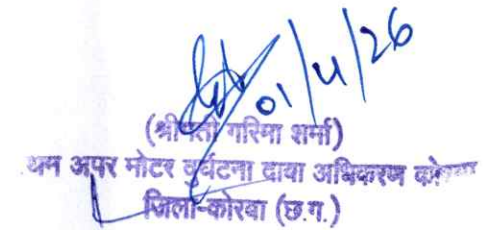 01/4/26
(श्रीमती गरिमा शर्मा)
अपर मोटर दुर्घटना दावा अधिकरण कोरबा
जिला-कोरबा (छ.ग.)